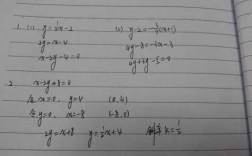 1. (1) y=½x-2 (2) y-2=-¾(x+1)
2y=x-4 4y-8=-3x-3
x-2y-4=0 4y+3y-5=0
2. x-2y+8=0
令 x=0, y=4 (0,4)
令 y=0, x=-8 (-8,0)
2y=x+8 y=½x+4 斜率 k=½